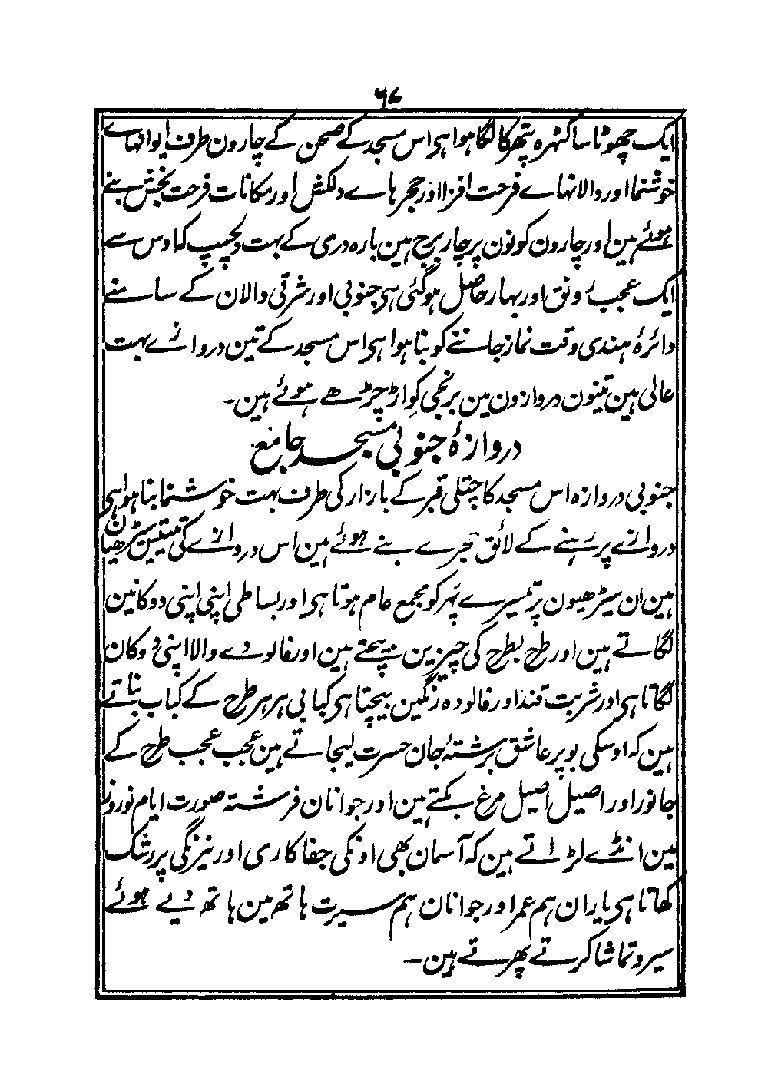 ۶۷
ایک چھوٹا سا کٹہرہ پتھر کا لگا ہوا ہی اس مسجد کے صحن کے چارون طرف ایوانہاے
خوشنما اور دالانہاے فرحت افزا اور حجرہاے دلکش اور مکانات فرحت بخش بنے
ہوئے ہین اور چارون کونون پر چار برج ہین بارہ دری کے بہت دلچسپ کہ اوس سے
ایک عجب رونق اور بہار حاصل ہو گئی ہی جنوبی اور شرقی دالان کے سامنے
دائرۂ ہندی وقت نماز جاننے کو بنا ہوا ہی اس مسجد کے تین دروازے بہت
عالی ہین تینون دروازون مین برنجی کواڑ چڑھے ہوئے ہین۔
دروازۂ جنوبی مسجد جامع
جنوبی دروازہ اس مسجد کا چتلی قبر کے بازار کی طرف بہت خوشنما بنا ہوا ہی
دروازے پر رہنے کے لائق حجرے بنے ہوئے ہین اس دروازے کی تینتیس سیڑھیان
ہین ان سیڑھیون پر تیسرے پہر کو مجمع عام ہوتا ہی اور بساطی اپنی اپنی دوکانین
لگاتے ہین اور طرح بطرح کی چیزین بیچتے ہین اور فالودے والا اپنی دوکان
لگاتا ہی اور شربت قند اور فالودہ رنگین بیچتا ہی کبابی ہر ہر طرح کے کباب بناتے
ہین کہ اوسکی بو پر عاشق برشتۂ جان حسرت لیجاتے ہین عجب عجب طرح کے
جانور اور اصیل اصیل مرغ بکتے ہین اور جوانان فرشتہ صورت ایام نوروز
مین انڈے لڑاتے ہین کہ آسمان بھی اونکی جفاکاری اور نیرنگی پر رشک
کھاتا ہی یاران ہم عمر اور جوانان ہم سیرت ہاتھ مین ہاتھ دیے ہوئے
سیر و تماشا کرتے پھرتے ہین۔